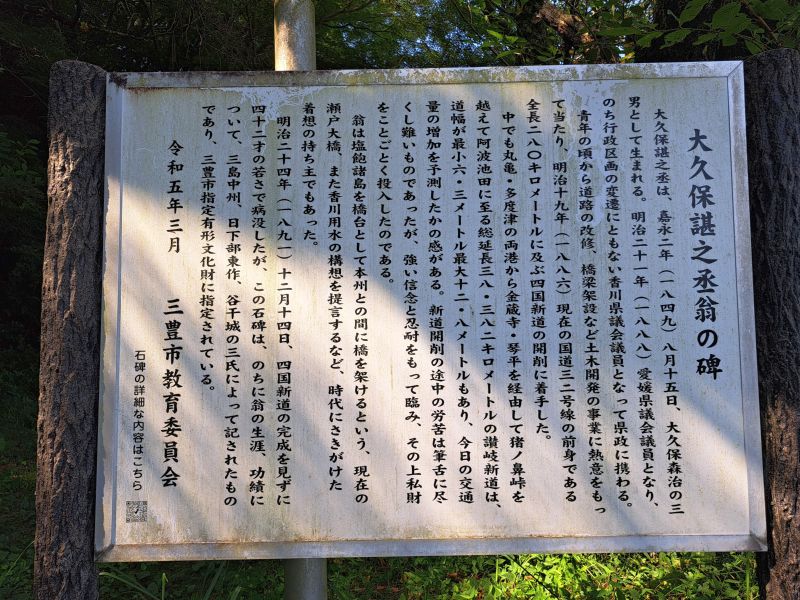 大久保諶之丞翁の碑
大久保諶之丞は、嘉永二年（一八四九）八月十五日、大久保森治の三
男として生まれる。明治二十一年（一八八八）愛媛県議会議員となり、
のち行政区画の変遷にともない香川県議会議員となって県政に携わる。
青年の頃から道路の改修、橋梁架設など土木開発の事業に熱意をもっ
て当たり、明治十九年（一八八六）現在の国道三二号線の前身である
全長二八〇キロメートルに及ぶ四国新道の開削に着手した。
中でも丸亀・多度津の両港から金蔵寺・琴平を経由して猪ノ鼻峠を
越えて阿波池田に至る総延長三八・三八二キロメートルの讃岐新道は、
道幅が最小六・三メートル最大十二・八メートルもあり、今日の交通
量の増加を予測したかの感がある。新道開削の途中の労苦は筆舌に尽
くし難いものであったが、強い信念と忍耐をもって臨み、その上私財
をことごとく投入したのである。
翁は塩飽諸島を橋台として本州との間に橋を架けるという、現在の
瀬戸大橋、また香川用水の構想を提言するなど、時代にさきがけた
着想の持ち主でもあった。
明治二十四年（一八九一）十二月十四日、四国新道の完成を見ずに
四十二才の若さで病没したが、この石碑は、のちに翁の生涯、功績に
ついて、三島中州、日下部東作、谷干城の三氏によって記されたもの
であり、三豊市指定有形文化財に指定されている。
令和五年三月　三豊市教育委員会
石碑の詳細な内容はこちら